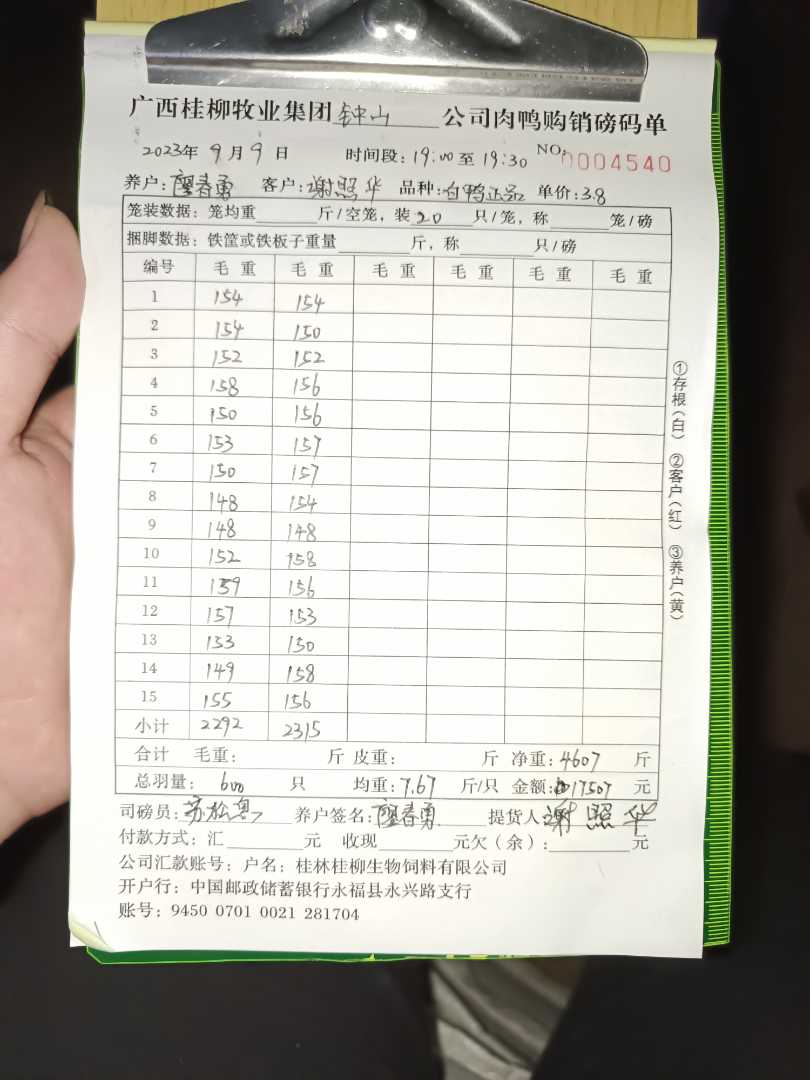 广西桂柳牧业集团钟山公司肉鸭购销磅码单
2023年9月9日 时间段:19:00至19:30 NO:0004540
养户:廖春勇 客户:谢照华 品种:白鸭正品 单价:3.8
笼装数据:笼均重 斤/空笼,装20只/笼,称 笼/磅
捆脚数据:铁筐或铁板子重量 斤,称 只/磅
编号 毛重 毛重 毛重 毛重 毛重 毛重
1 154 154
2 154 150
3 152 152
4 158 156
5 150 156
6 153 157
7 150 157
8 148 154
9 148 148
10 152 158
11 159 156
12 157 153
13 153 150
14 149 158
15 155 156
小计 2292 2315
合计 毛重: 斤 皮重: 斤 净重:4607 斤
总羽量:600 只 均重:7.67 斤/只 金额:17507 元
司磅员: 养户签名:廖春勇 提货人:谢照华
付款方式:汇 元 收现 元欠(余): 元
公司汇款账号:户名:桂林桂柳生物饲料有限公司
开户行:中国邮政储蓄银行永福县永兴路支行
账号:9450 0701 0021 281704
①存根(白) ②客户(红) ③养户(黄)